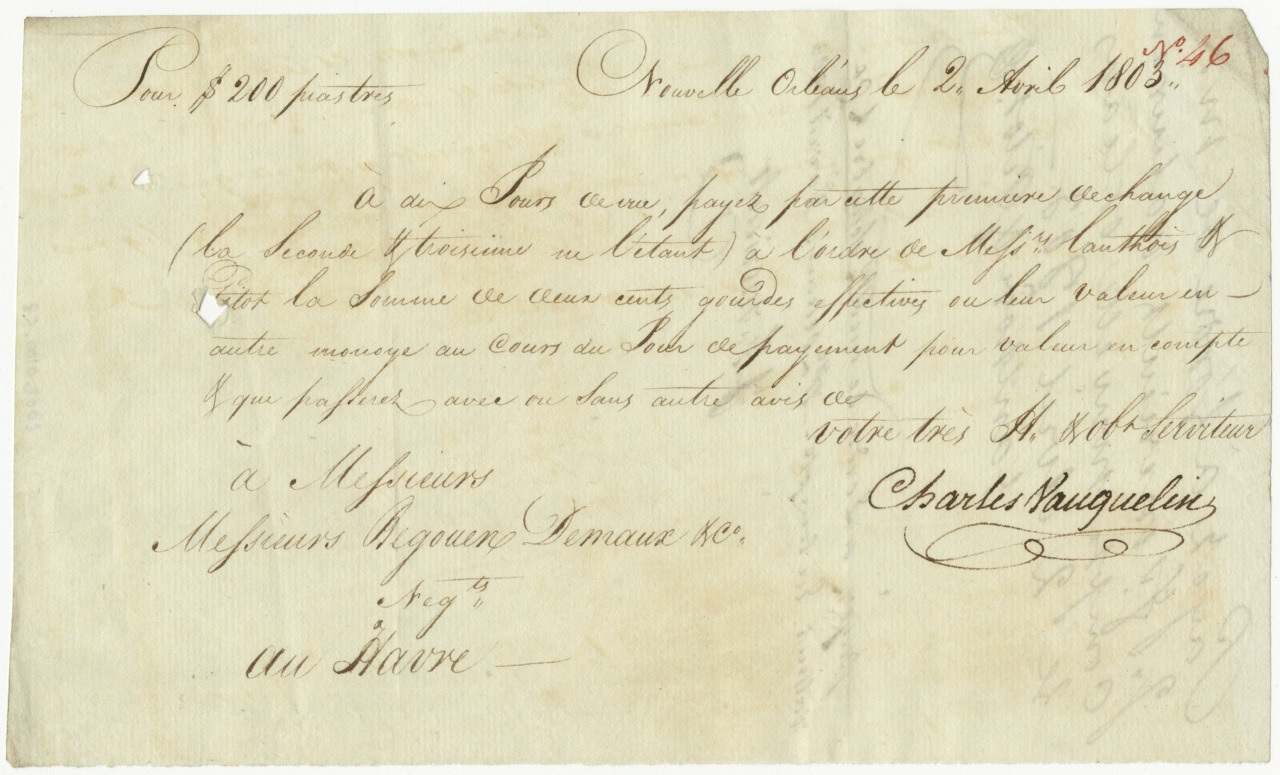 No. 46
Pour $ 200 piastres Nouvelle Orléans le 2,, Avril 1803,,
à dix Jours de vue, payez par cette première dechange
(la Seconde & troisieme ne l'étant) à l'ordre de Messrs Lanthois &
Pitot la Somme de deux cents gourdes effectives ou leur valeur en
autre monoye au Cours du Jour de payement pour valeur en compte
& que passerez avec ou Sans autre avis de
votre très H. & obt Serviteur
Charles Vauquelin
à Messieurs
Messieurs Begouen Demaux & Co.
Negts
au Havre